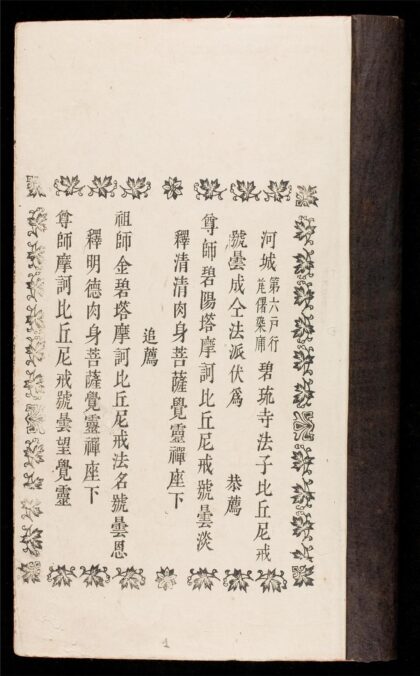 河城 第六戸行 碧琉寺法子比丘尼戒
號曇成仝法派伏爲 恭薦
尊師碧陽塔摩訶比丘尼戒號曇淡
釋清清肉身菩薩覺靈禪座下
追薦
祖師金碧塔摩訶比丘尼戒法名號曇恩
釋明德肉身菩薩覺靈禪座下
尊師摩訶比丘尼戒號曇望覺靈
1